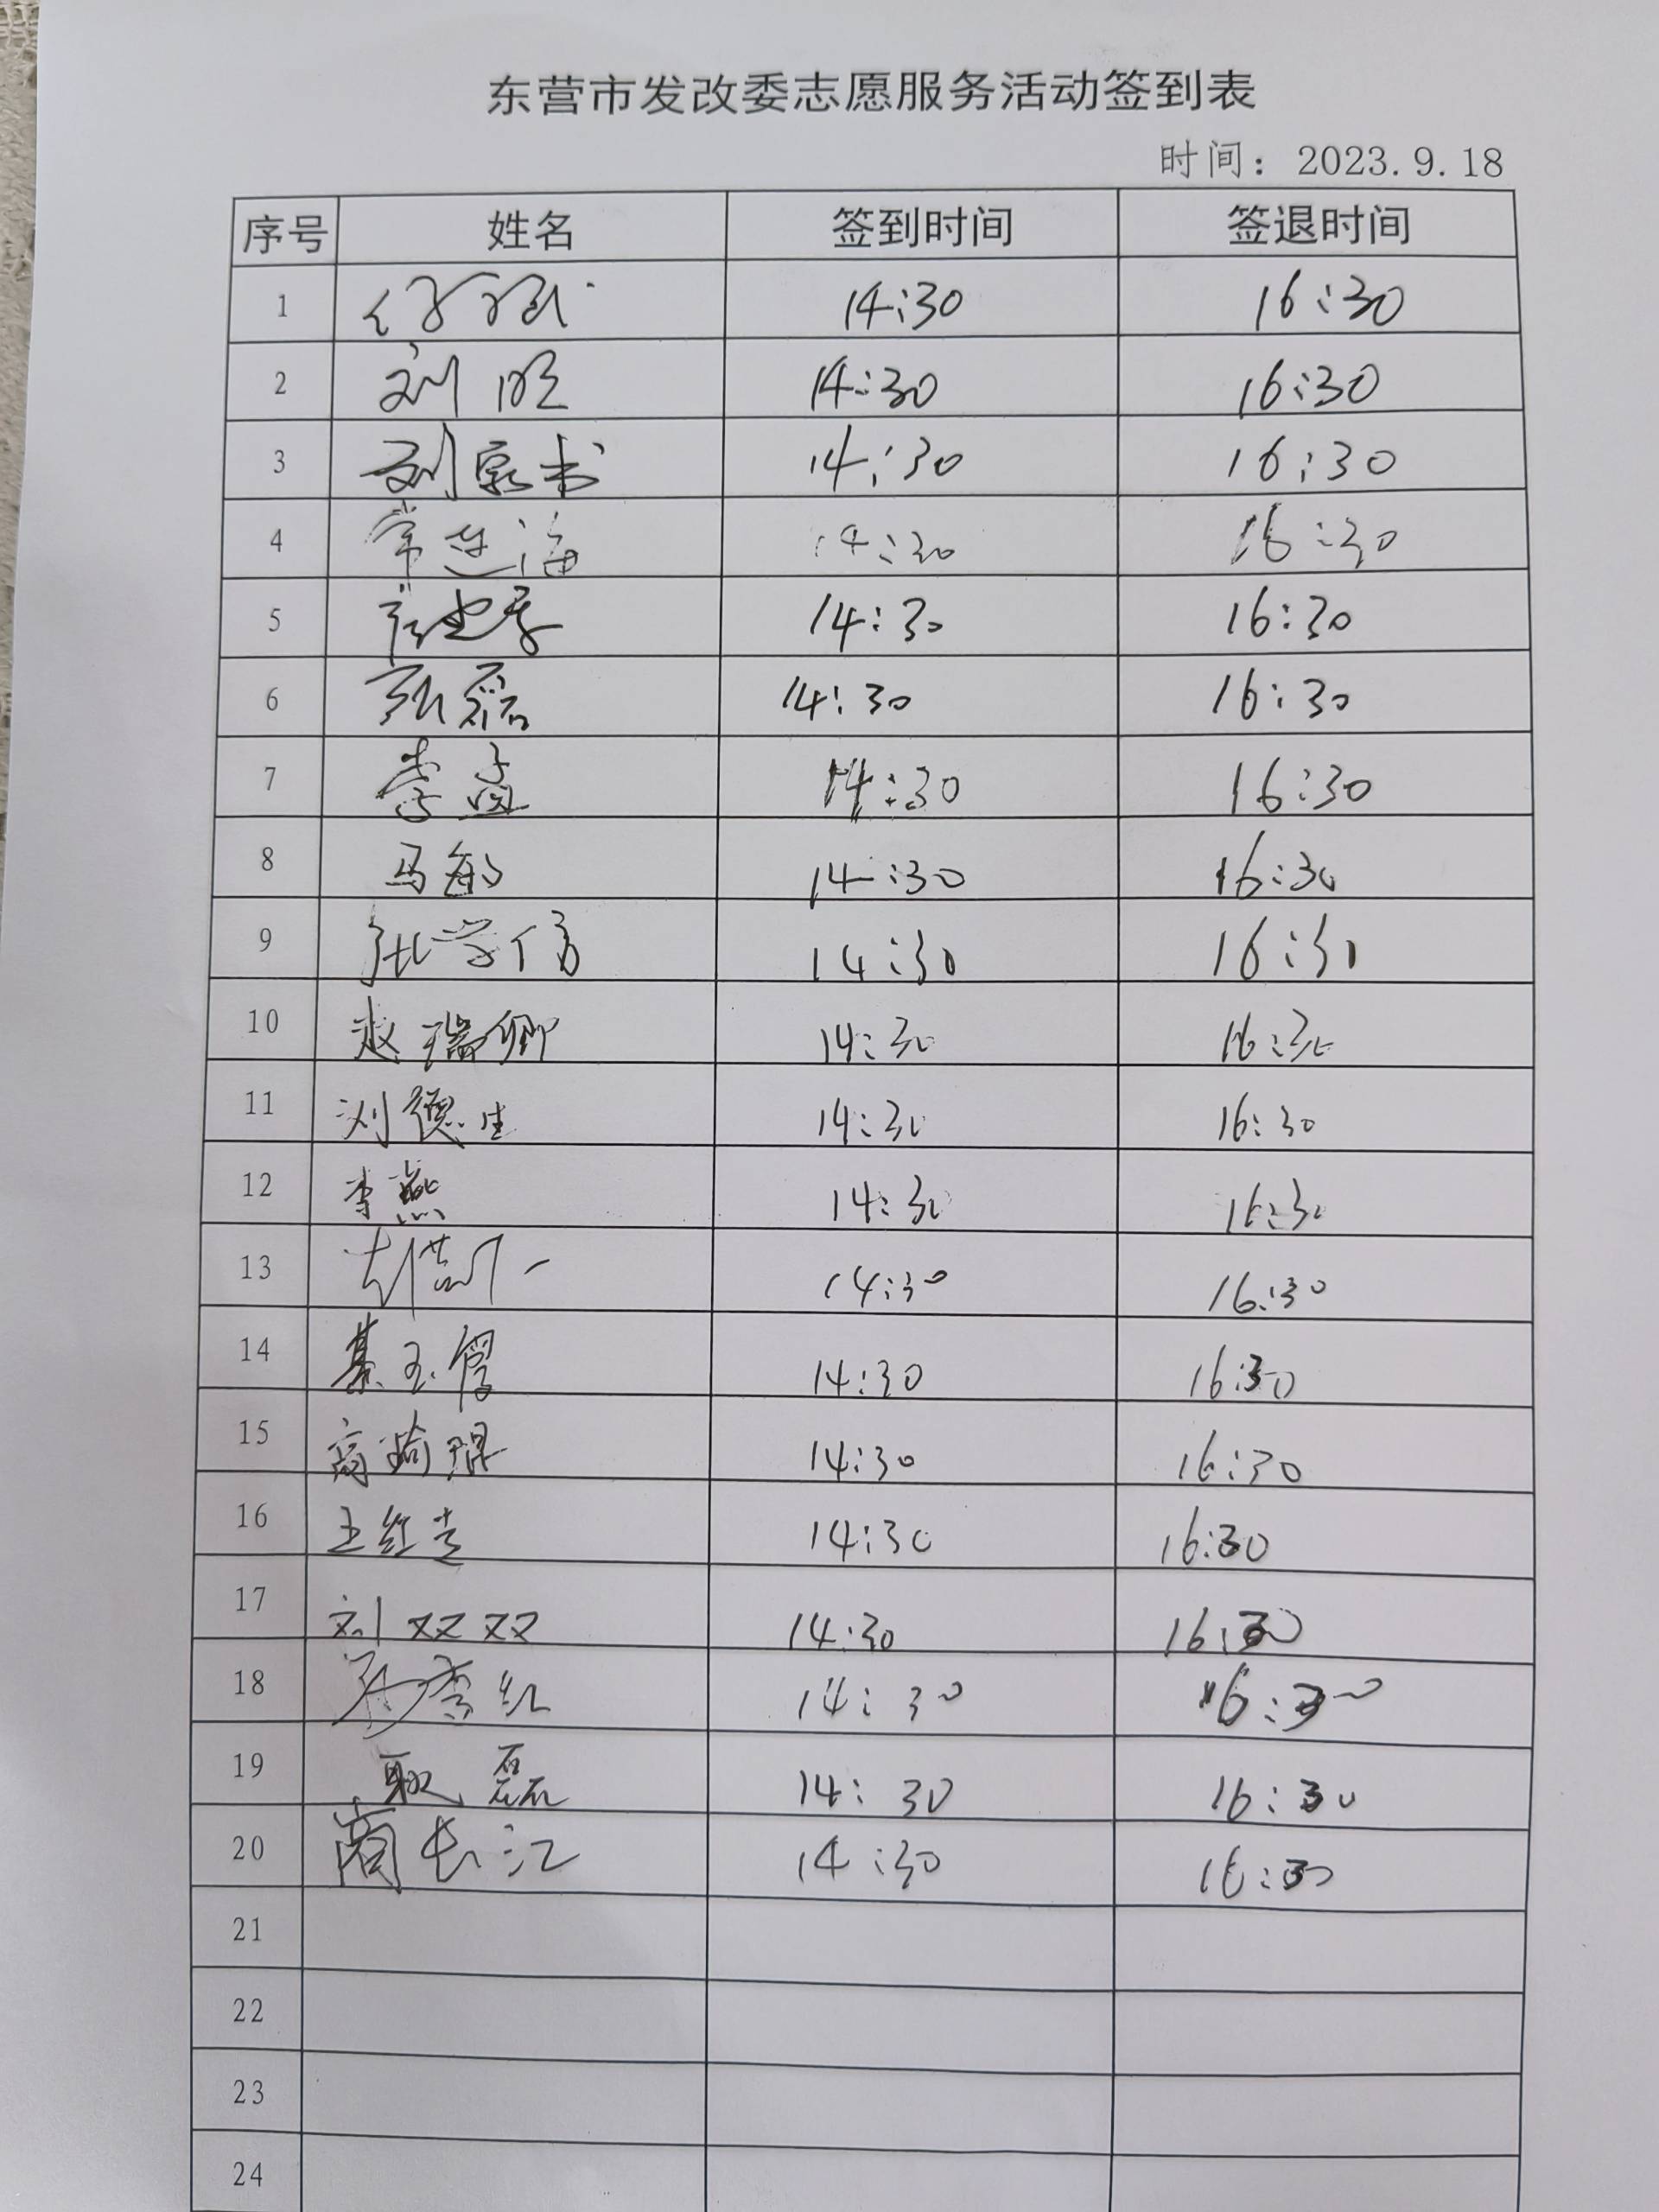 东营市发改委志愿服务活动签到表
时间：2023.9.18
序号 姓名 签到时间 签退时间
1 14:30 16:30
2 刘 14:30 16:30
3 刘 14:30 16:30
4 常连海 14:30 16:30
5 14:30 16:30
6 张磊 14:30 16:30
7 李孟 14:30 16:30
8 马敏 14:30 16:30
9 张学 14:30 16:30
10 赵瑞卿 14:30 16:30
11 刘德生 14:30 16:30
12 李燕 14:30 16:30
13 14:30 16:30
14 綦玉 14:30 16:30
15 商琦琨 14:30 16:30
16 王红 14:30 16:30
17 刘双双 14:30 16:30
18 红 14:30 16:30
19 耿磊 14:30 16:30
20 商长江 14:30 16:30
21
22
23
24